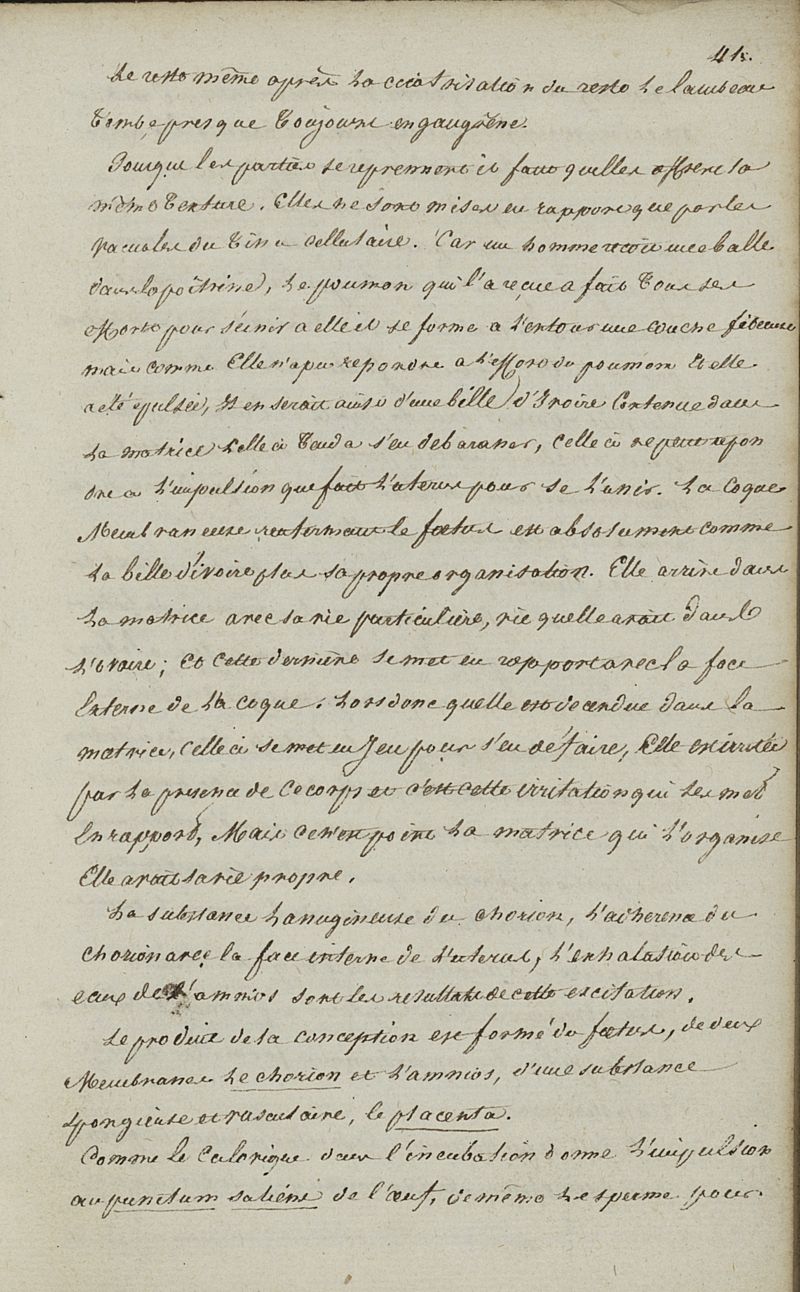 41.
Le reste même après la cicatrisation du reste le lambeau
tombe presque toujours en gangrène.
Pourque les parties se reprennent il faut quelles offrent la
même texture. Elles ne sont mises en rapport que par les
vacuoles du tissu cellulaire. Car un homme recoit une balle
dans la poitrine, le poumon qui l'a reçue a fait tous ses
efforts pour s'unir a elle il se forme a l'entour une couche fibreuse
mais comme Elle n'a pu repondre a l'effort du poumon Elle
a été expulsée, Il en serait ainsi d'une bille d'Ivoire Contenue dans
la matrice celle ci tend a s'en debarasser, celle ci ne peut repon
dre a l'impulsion que fait l'uterus pour se l'unir. La Coque
Membraneuse renfermant le fœtus est absolument comme
la bille d'ivoire plus sa propre organisation. Elle arrive dans
la matrice avec sa vie particulière, vie quelle avait dans
l'ovaire; Et cette dernière se met en rapport avec la face
Externe de la coque. Lors donc quelle est decendue dans la
matrice, celle ci se met en Jeu pour s'en défaire, Elle est irritée
par la presence de ce corps et c'est cette irritation qui les met
En rapport, Mais ce n'est point la matrice qui l'organise
Elle avait sa vie propre.
La substance lanugineuse du chorion, l'adherence du
chorion avec la face interne de l'uterus, l'exhalation des
eaux de l'amnios sont les resultats de cette excitation.
Le produit de la conception est formé du fœtus, de deux
Membranes le chorion et l'amnios, d'une substance
spongieuse et vasculaire, le placenta.
Comme le Calorique dans l'incubation donne l'impulsion
au punctum saliens de l'œuf, de même le sperme pour